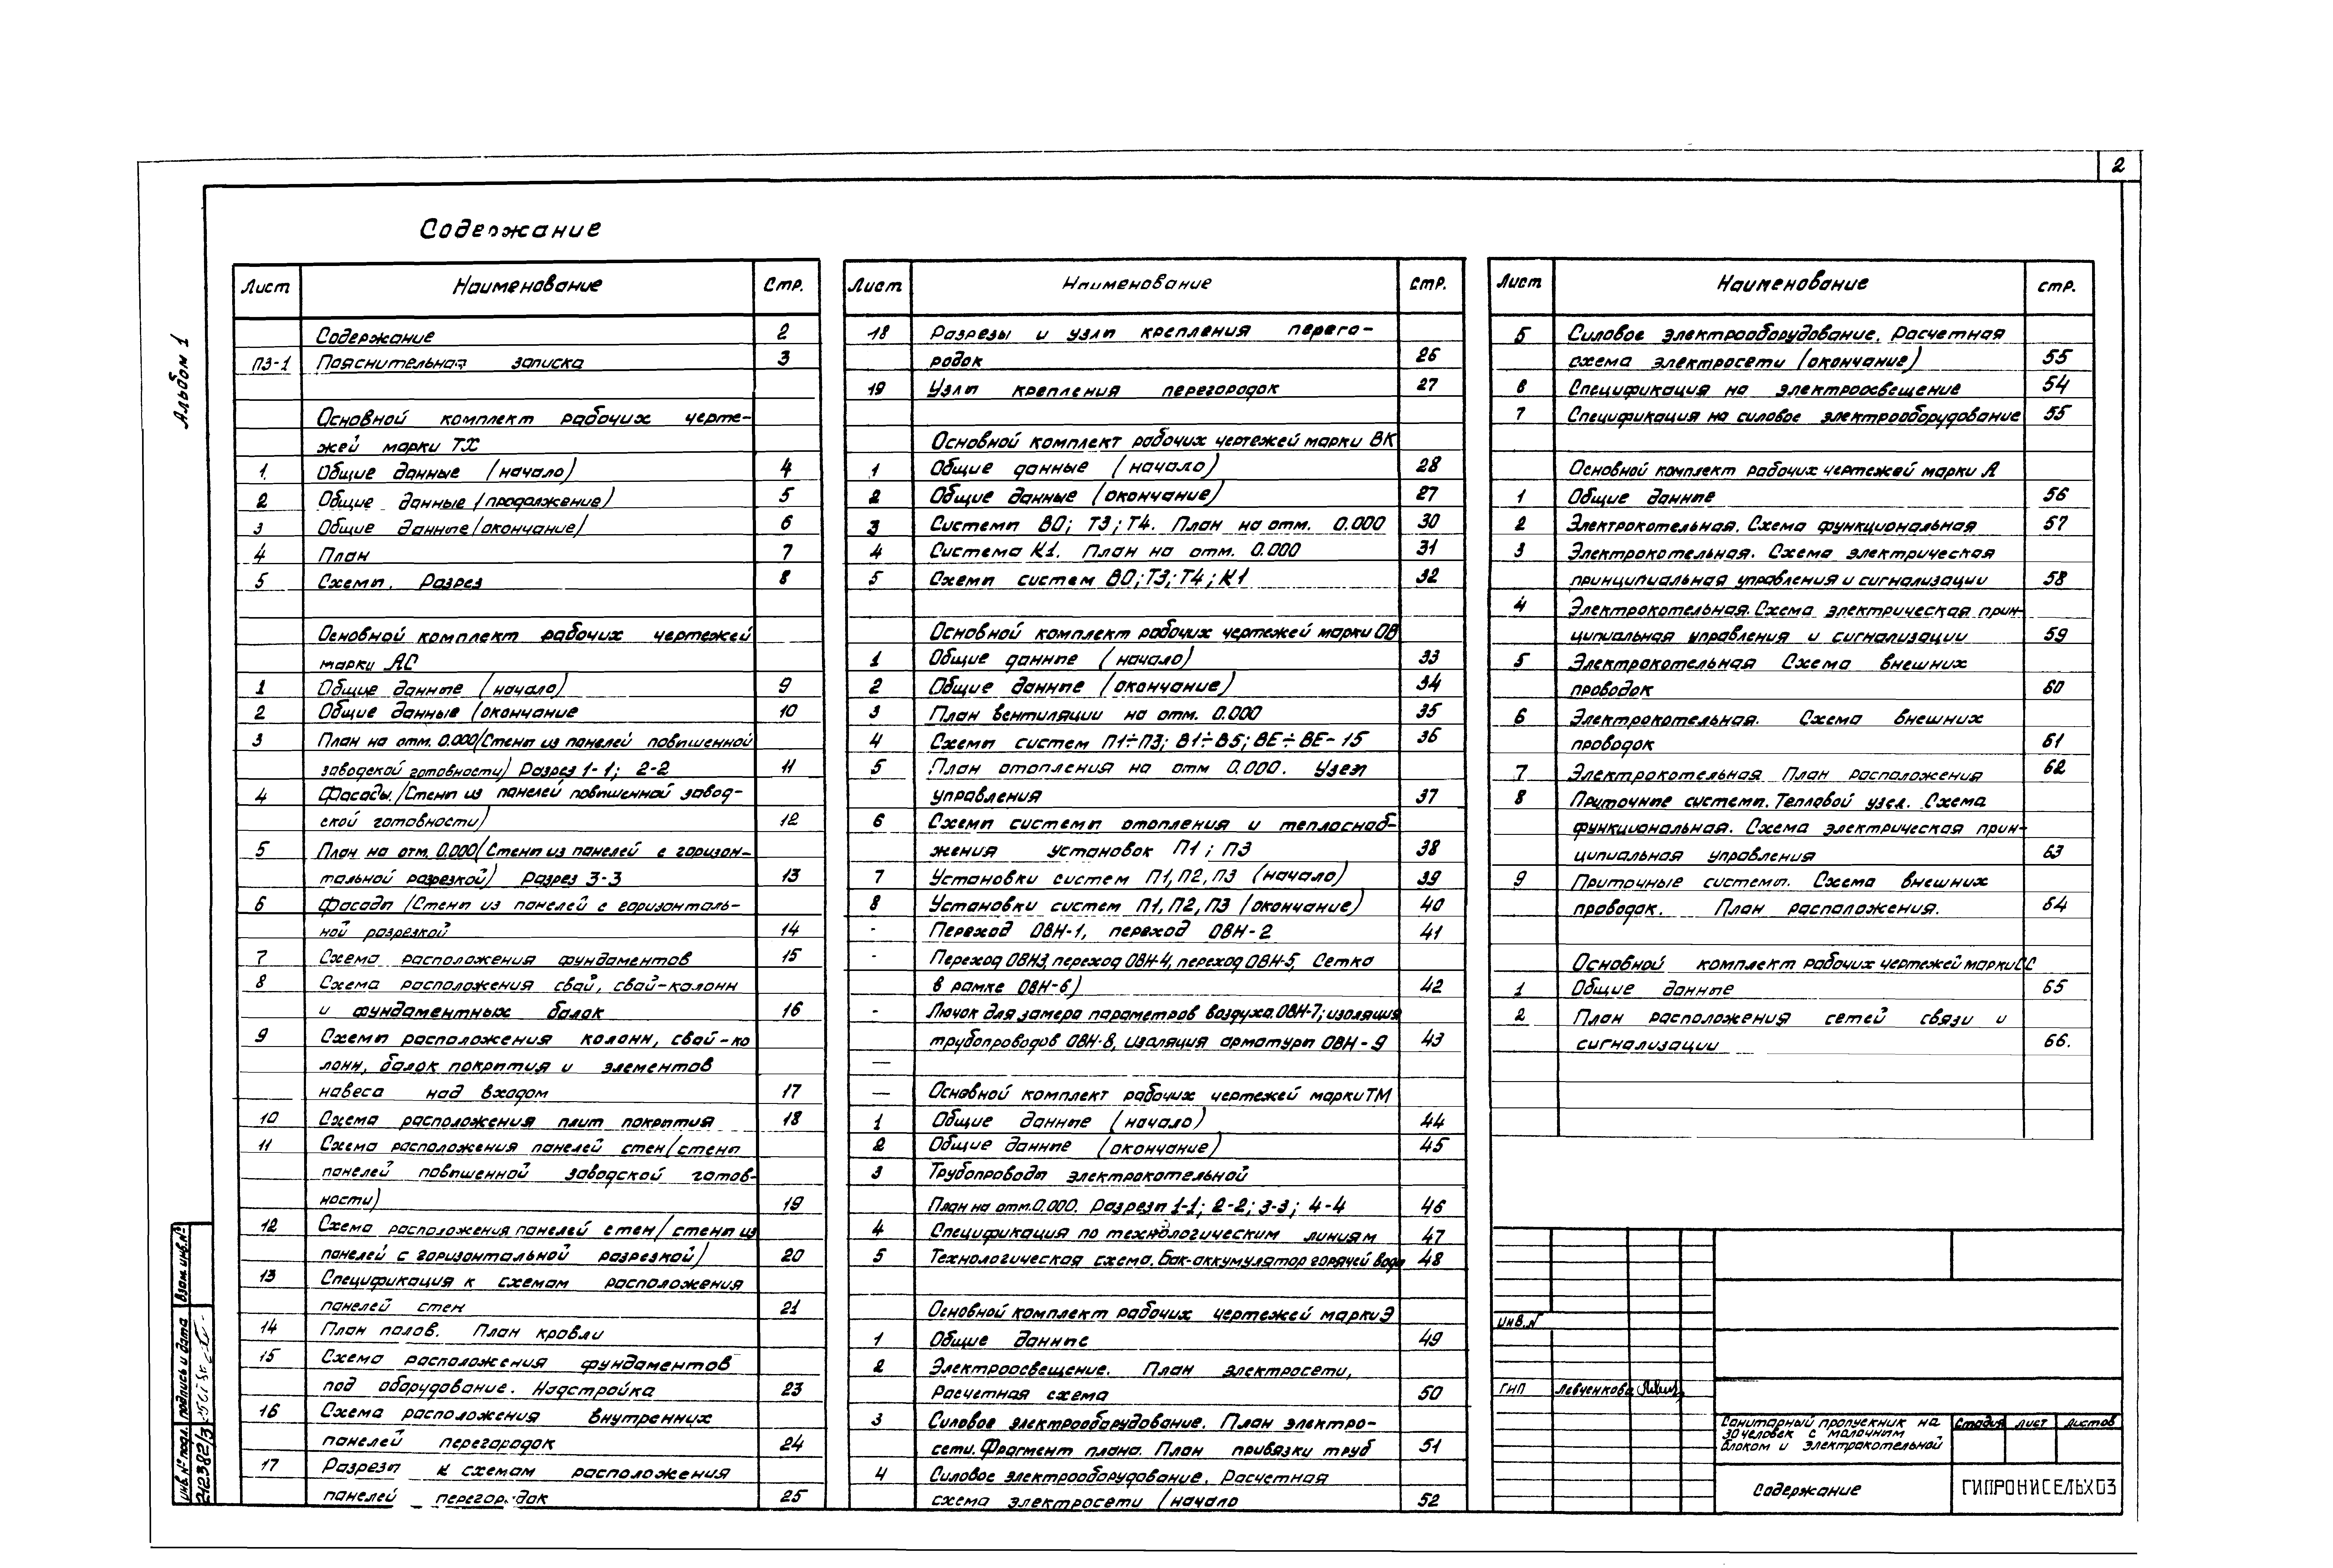 2
Содержание
Альбом 1
Лист Наименование Стр.
Содержание 2
ПЗ-1 Пояснительная записка 3
Основной комплект рабочих черте-
жей марки ТХ
1. Общие данные (начало) 4
2 Общие данные (продолжение) 5
3 Общие данные (окончание) 6
4 План 7
5 Схемы. Разрез 8
Основной комплект рабочих чертежей
марки АС
1 Общие данные (начало) 9
2 Общие данные (окончание 10
3 План на отм. 0.000 (Стены из панелей повышенной
заводской готовности) Разрез 1-1; 2-2 11
4 Фасады. (Стены из панелей повышенной завод-
ской готовности) 12
5 План на отм. 0.000 (Стены из панелей с горизон-
тальной разрезкой) Разрез 3-3 13
6 Фасады (Стены из панелей с горизонталь-
ной разрезкой 14
7 Схема расположения фундаментов 15
8 Схема расположения свай, свай-колонн
и фундаментных балок 16
9 Схемы расположения колонн, свай-ко
лонн, балок покрытия и элементов
навеса над входом 17
10 Схема расположения плит покрытия 18
11 Схема расположения панелей стен (стены
панелей повышенной заводской готов-
ности) 19
12 Схема расположения панелей стен (стены из
панелей с горизонтальной разрезкой) 20
13 Спецификация к схемам расположения
панелей стен 21
14 План полов. План кровли
15 Схема расположения фундаментов
под оборудование. Надстройка 23
16 Схема расположения внутренних
панелей перегородок 24
17 Разрезы к схемам расположения
панелей перегородок 25
Лист Наименование стр.
18 Разрезы и узлы крепления перего-
родок 26
19 Узлы крепления перегородок 27
Основной комплект рабочих чертежей марки ВК
1 Общие данные (начало) 28
2 Общие данные (окончание) 27
3 Системы В0; Т3; Т4. План на отм. 0.000 30
4 Система К1. План на отм. 0.000 31
5 Схемы систем В0; Т3; Т4; К1 32
Основной комплект рабочих чертежей марки ОВ
1 Общие данные (начало) 33
2 Общие данные (окончание) 34
3 План вентиляции на отм. 0.000 35
4 Схемы систем П1÷П3; В1÷В5; ВЕ÷ВЕ-15 36
5 План отопления на отм 0.000. Узел
управления 37
6 Схемы системы отопления и теплоснаб-
жения установок П1; П3 38
7 Установки систем П1, П2, П3 (начало) 39
8 Установки систем П1, П2, П3 (окончание) 40
- Переход ОВН-1, переход ОВН-2 41
- Переход ОВН3, переход ОВН-4, переход ОВН-5, Сетка
в рамке ОВН-6) 42
- Лючок для замера параметров воздуха. ОВН-7; изоляция
трубопроводов ОВН-8, изоляция арматуры ОВН-9 43
—
— Основной комплект рабочих чертежей марки ТМ
1 Общие данные (начало) 44
2 Общие данные (окончание) 45
3 Трубопроводы электрокотельной
План на отм. 0.000. Разрезы 1-1; 2-2; 3-3; 4-4 46
4 Спецификация по технологическим линиям 47
5 Технологическая схема. Бак-аккумулятор горячей воды 48
Основной комплект рабочих чертежей марки Э
1 Общие данные 49
2 Электроосвещение. План электросети,
Расчетная схема 50
3 Силовое электрооборудование. План электро-
сети. Фрагмент плана. План привязки труб 51
4 Силовое электрооборудование. Расчетная
схема электросети (начало 52
Лист Наименование стр.
5 Силовое электрооборудование. Расчетная
схема электросети (окончание) 55
6 Спецификация на электроосвещение 54
7 Спецификация на силовое электрооборудование 55
Основной комплект рабочих чертежей марки А
1 Общие данные 56
2 Электрокотельная. Схема функциональная 57
3 Электрокотельная. Схема электрическая
принципиальная управления и сигнализации 58
4 Электрокотельная. Схема электрическая прин-
ципиальная управления и сигнализации 59
5 Электрокотельная Схема внешних
проводок 60
6 Электрокотельная. Схема внешних
проводок 61
7 Электрокотельная План расположения 62
8 Приточные системы. Тепловой узел. Схема
функциональная. Схема электрическая прин-
ципиальная управления 63
9 Приточные системы. Схема внешних
проводок. План расположения. 64
Основной комплект рабочих чертежей марки СС
1 Общие данные 65
2 План расположения сетей связи и
сигнализации 66.
инв. №
ГИП Левченкова
Санитарный пропускник на
30 человек с молочным
блоком и электрокотельной
Стадия Лист Листов
Содержание
ГИПРОНИСЕЛЬХОЗ
Взам. инв. №
подпись и дата
инв. № подл.
212382/3